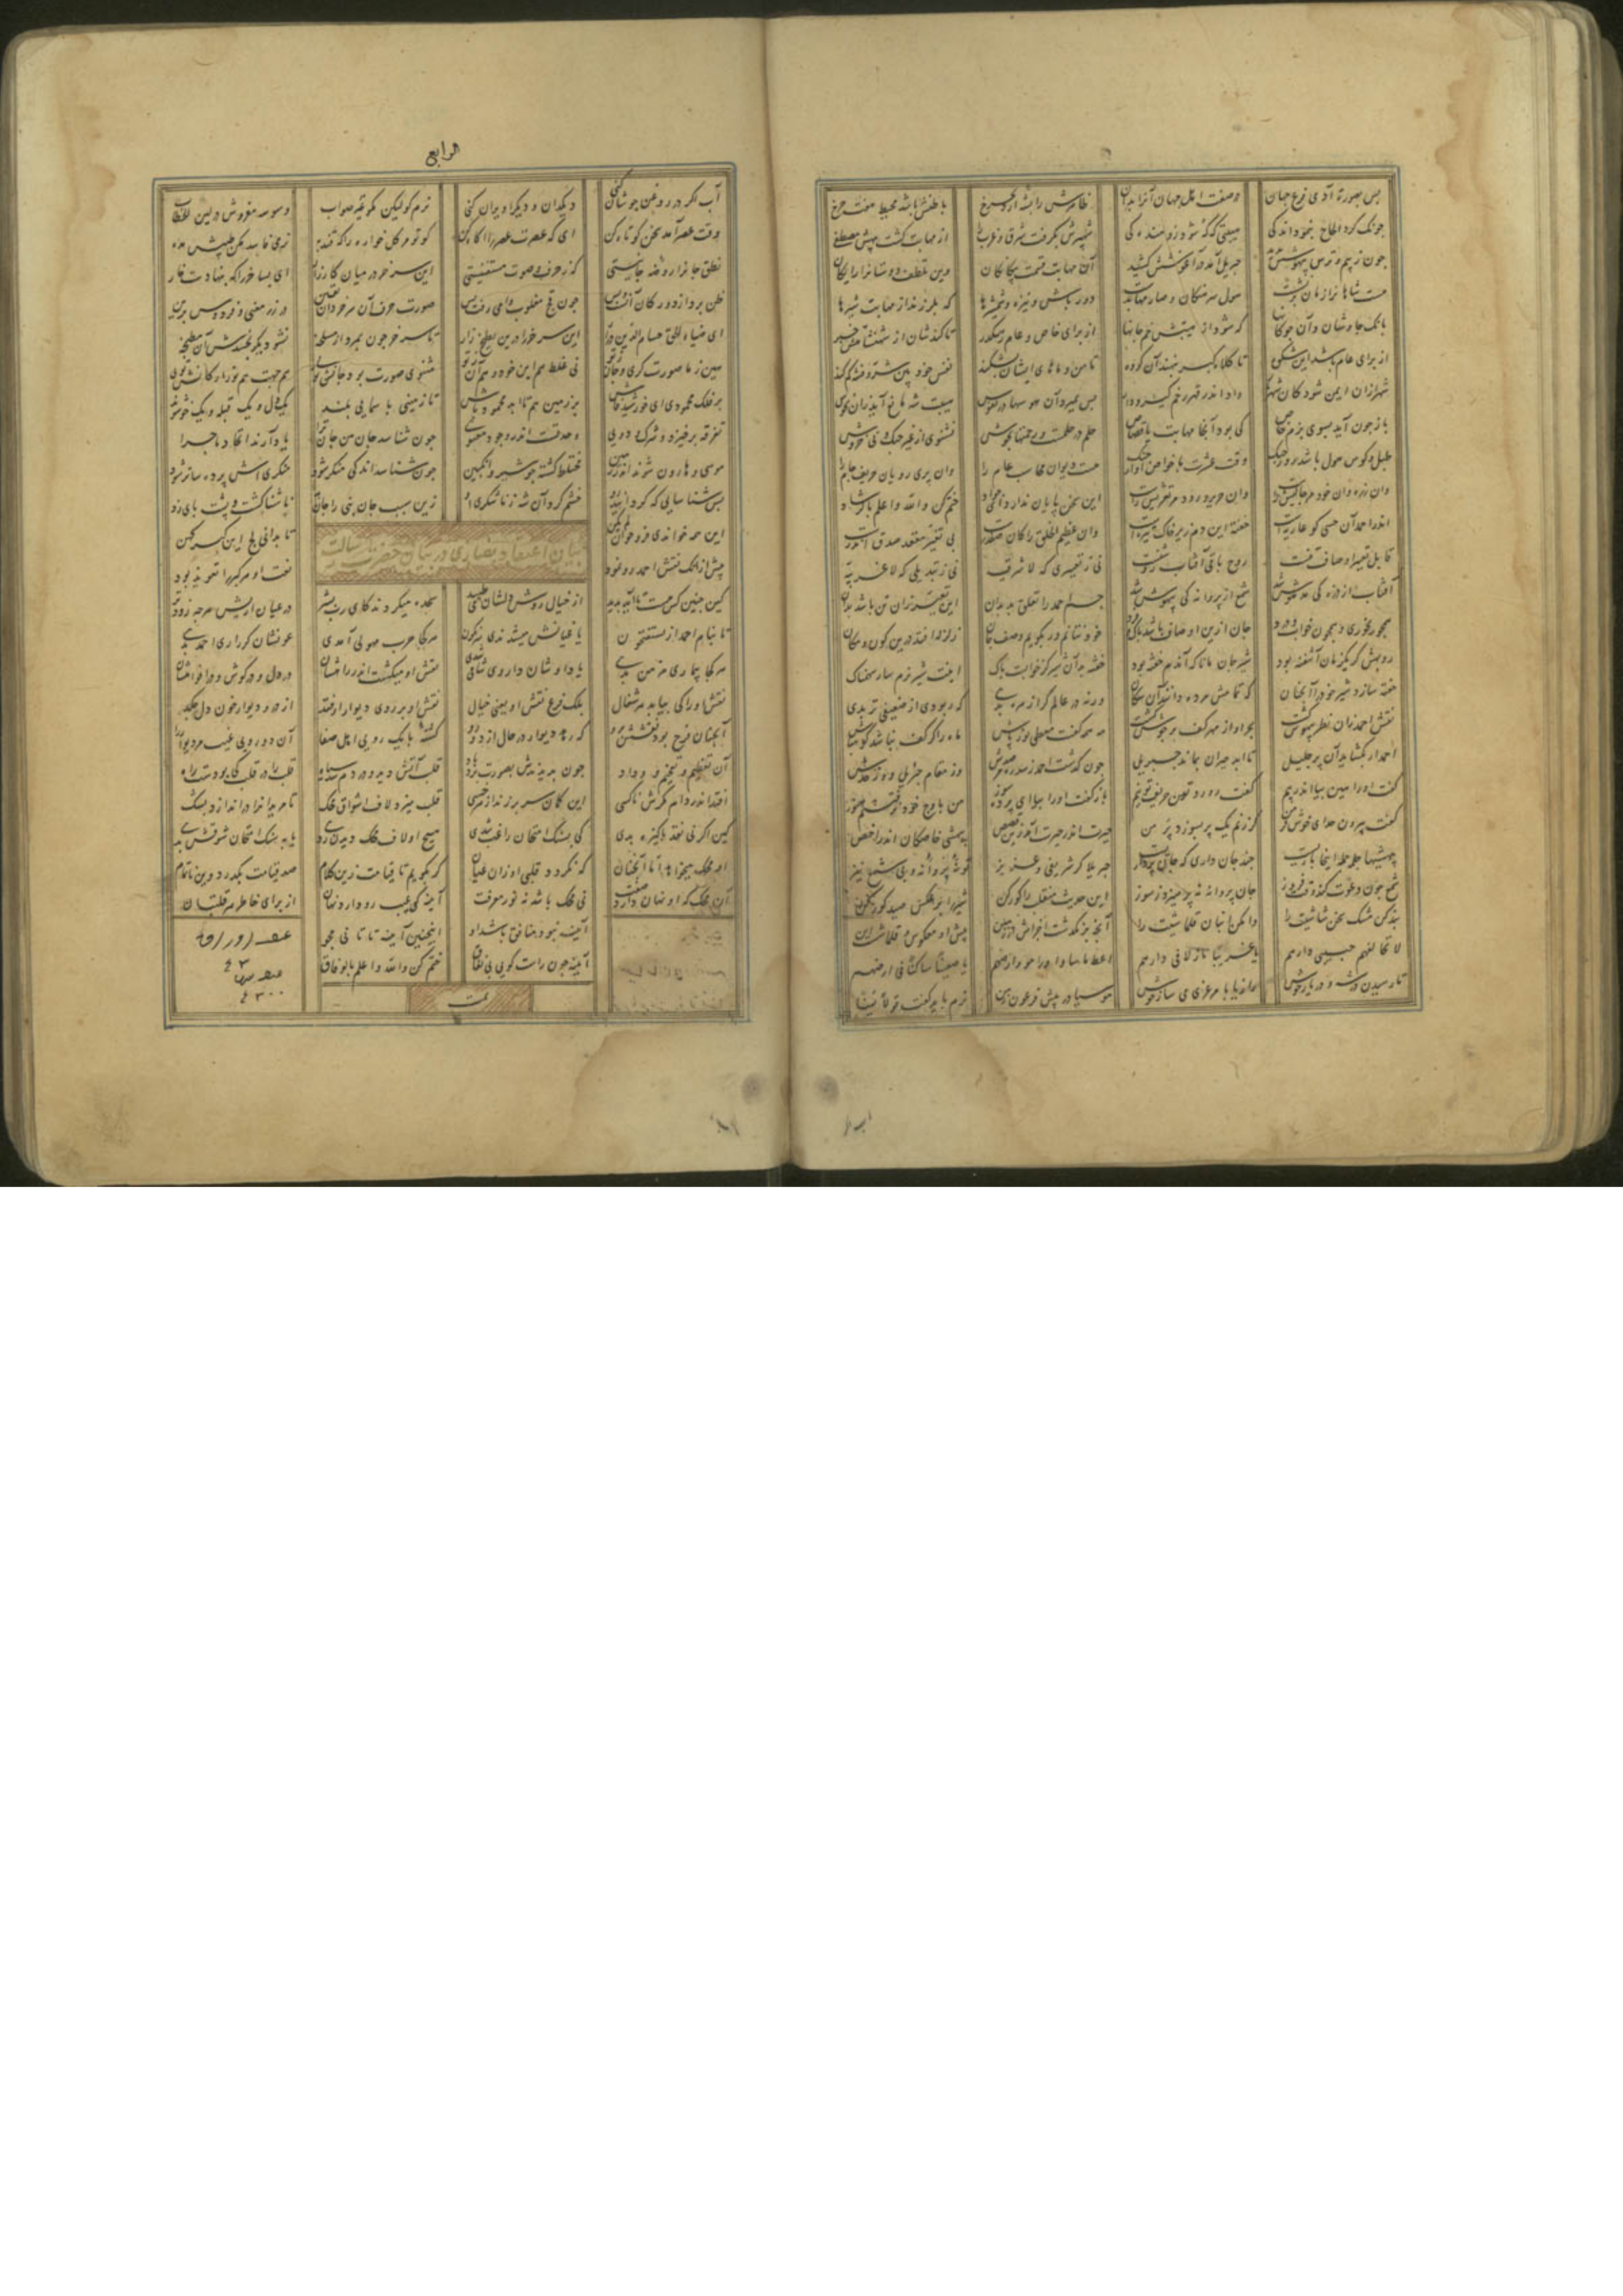 پس بصورت آدمی فرع جهان وز صفت اصل جهان آنرا بدان ظاهرش را پشه آرد بچرخ باطنش باشد محیط هفت چرخ
چونک کرد الحاح بنمود اندکی هیبتی که که شود زو مندکی شهپرش بگرفت شرق و غرب را از مهابت گشت بیهش مصطفی
چون ز بیم و ترس بیهوشش بدید جبریل آمد در آغوشش کشید آن مهابت قسمت بیگانگان وین تلطف دوستانرا رایگان
هست شاهانرا زمان برنشست هول سرهنگان و صارمها بدست دور باش و نیزه و شمشیرها که بلرزند از مهابت شیرها
بانک چاوشان و آن چوکانها که شود از هیبتش جانها از برای خاص و عام رهگذر تا کندشان از شهنشاهی خبر
از برای عام باشد این شکوه تا کلاه کبر ننهند آن گروه تا من و ماهای ایشان بشکند نفس خود بین شر و فتنه کم کند
شهر ازان ایمن شود کان شهریار دارد اندر قهر زخم گیر و دار پس بمیرد آن هوسها در نفوس هیبت شه مانع آید زان نحوس
باز چون آید بسوی بزم خاص کی بود آنجا مهابت یا قصاص حلم در حلمست و رحمتها بجوش نشنوی از غیر چنگ و نی خروش
طبل و کوس هول باشد روز جنگ وقت عشرت با خواص آواز چنگ هست دیوان محاسب عام را وان پری رویان حریف جام را
وان زره وان خود مر چالیش راست وان حریر و رود مر تعریش راست این سخن پایان ندارد ای جواد ختم کن والله اعلم بالرشاد
اندر احمد آن حسی کو غاربست خفته این دم زیر خاک یثربست وان عظیم الخلق را کان صفدرست بی تغیر مقعد صدق اندرست
قابل تغییر اوصاف تنست روح باقی آفتاب روشنست نی ز تغییری که لا شرقیه نی ز تبدیلی که لا غربیه
آفتاب از ذره کی مدهوش شد شمع از پروانه کی بیهوش شد جسم احمد را تعلق بد بدان این تغیر زان تن باشد بدان
همچو رنجوری و همچون خواب و درد جان ازین اوصاف باشد پاک و فرد خود نتانم ور بگویم وصف جان زلزله افتد درین کون و مکان
روبهش گر یک زمان آشفته بود شیر جان مانا که آندم خفته بود خفته بد آن شیر کز خوابست پاک اینت شیر نرم سار سهمناک
خفته سازد شیر خود را آنچنان که تمامش مرده دانند آن سگان ورنه در عالم کرا زهره بدی که ربودی از ضعیفی تربدی
نقش احمد زان نظر بیهوش گشت بحر او از مهر کف پرجوش گشت مه همه کفست معطی نورپاش ماه را گر کف نباشد گو مباش
احمد ار بگشاید آن پر جلیل تا ابد حیران بماند جبریل چون گذشت احمد ز سدره مرصدش وز مقام جبریل و از حدش
گفت او را هین بیا اندر پیم گفت رو رو حریف تو نیم باز گفت او را بیا ای پرده سوز من باوج خود نرفتستم هنوز
گفت بیرون زین حد ای خوش فر من گر زنم یک پر بسوزد پر من حیرت اندر حیرت آمد زین قصص بیهشی خاصگان اندر اخص
بیهشیها جمله اینجا بازیست چند جان داری که جان پردازیست جبرئیلا گر شریفی و عزیز تو نه پروانه و نی شمع نیز
شمع چون دعوت کند وقت فروز جان پروانه نپرهیزد ز سوز این حدیث منقلب را گور کن شیر را برعکس صید گور کن
بند کن مشک سخن شاشیت را وا مکن انبان قلماشیت را آنک برنگذشت اجزاش از زمین پیش او معکوس و قلماشیست این
لا تخالفهم حبیبی دارهم یا غریبا نازلا فی دارهم اعط ما شاوا و راموا وارضهم یا ظعینا ساکنا فی ارضهم
تا رسیدن در شه و در ناز خوش رازیا با مرغزی می ساز خوش موسیا در پیش فرعون زمن نرم باید گفت قولا لینا
الرابع
آب اگر در روغن جوشان کنی دیکدان و دیک را ویران کنی نرم گو لیکن مگو غیر صواب وسوسه مفروش در لین الخطاب
وقت عصر آمد سخن کوتاه کن ای که عصرت عصر را آگاه کن گو تو مر گل خواره را که قند به نرمی فاسد مکن طینش مده
نطق جانرا روضه جانیستی گر ز حرف و صوت مستغنیستی این سر خر در میان قندزار ای بسا خر را که بنهادست خار
ظن ببرد از دور کان آنست و بس چون قچ مغلوب وا می رفت پس صورت حرف آن سر خر دان یقین در رز معنی و فردوس برین
ای ضیاء الحق حسام الدین در آر این سر خر را درین بطیخ زار تا سر خر چون بمرد از مسلخه نشو دیگر بخشدش آن مطبخه
هین ز ما صورت گری و جان ز تو نی غلط هم این خود و هم آن ز تو مثنوی صورت بود جانش توی هم جهت هم نور و ارکانش توی
بر فلک محمودی ای خورشید فاش بر زمین هم تا ابد محمود باش تا زمینی با سمایی بلند یکدل و یک قبله و یک خو شوند
تفرقه برخیزد و شرک و دوی وحدتست اندر وجود معنوی چون شناسد جان من جان ترا یاد آرند اتحاد و ماجرا
موسی و هارون شوند اندر زمین مختلط گشته چو شیر و انگبین چون شناسد اندکی منکر شود منکری اش پرده ساتر شود
بس شناسایی که گردانید رو خشم کرد آن مه ز ناشکری او زین سبب جان نبی را جان بد ناشناسا گشت و پشت پای زد
این همه خواندی فرو خوان لم یکن تا بدانی لج این گبر کهن
بیان اعتقاد نصاری در شان حضرت رسالت
پیش از آنک نقش احمد رو نمود نعت او هر گبر را تعویذ بود
کین چنین کس هست تا آید پدید از خیال روش دلشان می طپید سجده میکردند کای رب بشر در عیان آریش هر چه زودتر
تا بنام احمد از یستفتحون یاغیانش میشدندی سرنگون هر کجا حرب مهولی آمدی غوثشان کراری احمد بدی
هر کجا بیماری مزمن بدی یاد او شان داروی شافی شدی نقش او میگشت اندر راهشان در دل و در گوش و در افواهشان
نقش او را کی بیابد هر شغال بلک فرع نقش او یعنی خیال نقش او بر روی دیوار ار فتد از در و دیوار خون دل چکد
آنچنان فرخ بود نقشش برو که رهد دیوار در حال از دو رو گشته با یک رویی اهل صفا آن دو رویی عیب مر دیوار را
آن تعظیم و تفخیم و وداد چون بدیدندش بصورت برد باد قلب آتش دید و در دم شد سیاه قلب را در قلب کی بودست راه
قلب میزد لاف اشواق محک تا مریدانرا در اندازد بشک
افتد اندر دام مکرش ناکسی این گمان سر بر زند از هر خسی
کین اگر نی نقد پاکیزه بدی کی بسنگ امتحان راغب شدی
او محک میخواهد اما آنچنان که نگردد قلبی او زان عیان گر بگویم تا قیامت زین کلام صد قیامت بگذرد وین ناتمام
آن محک که او نهان دارد صفت نی محک باشد نه نور معرفت آینه کی عیب رو دارد نهان از برای خاطر هر قلتبان
آینه نبود منافق باشد او اینچنین آینه تا تانی مجو
آینه چون راست گوید بی نفاق ختم کن والله اعلم بالوفاق
تمت